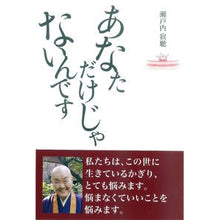 瀬戸内寂聴
あなた
だけじゃ
ないんです
私たちは、この世に
生きているかぎり、
とても悩みます。
悩まなくていいことを
悩みます。